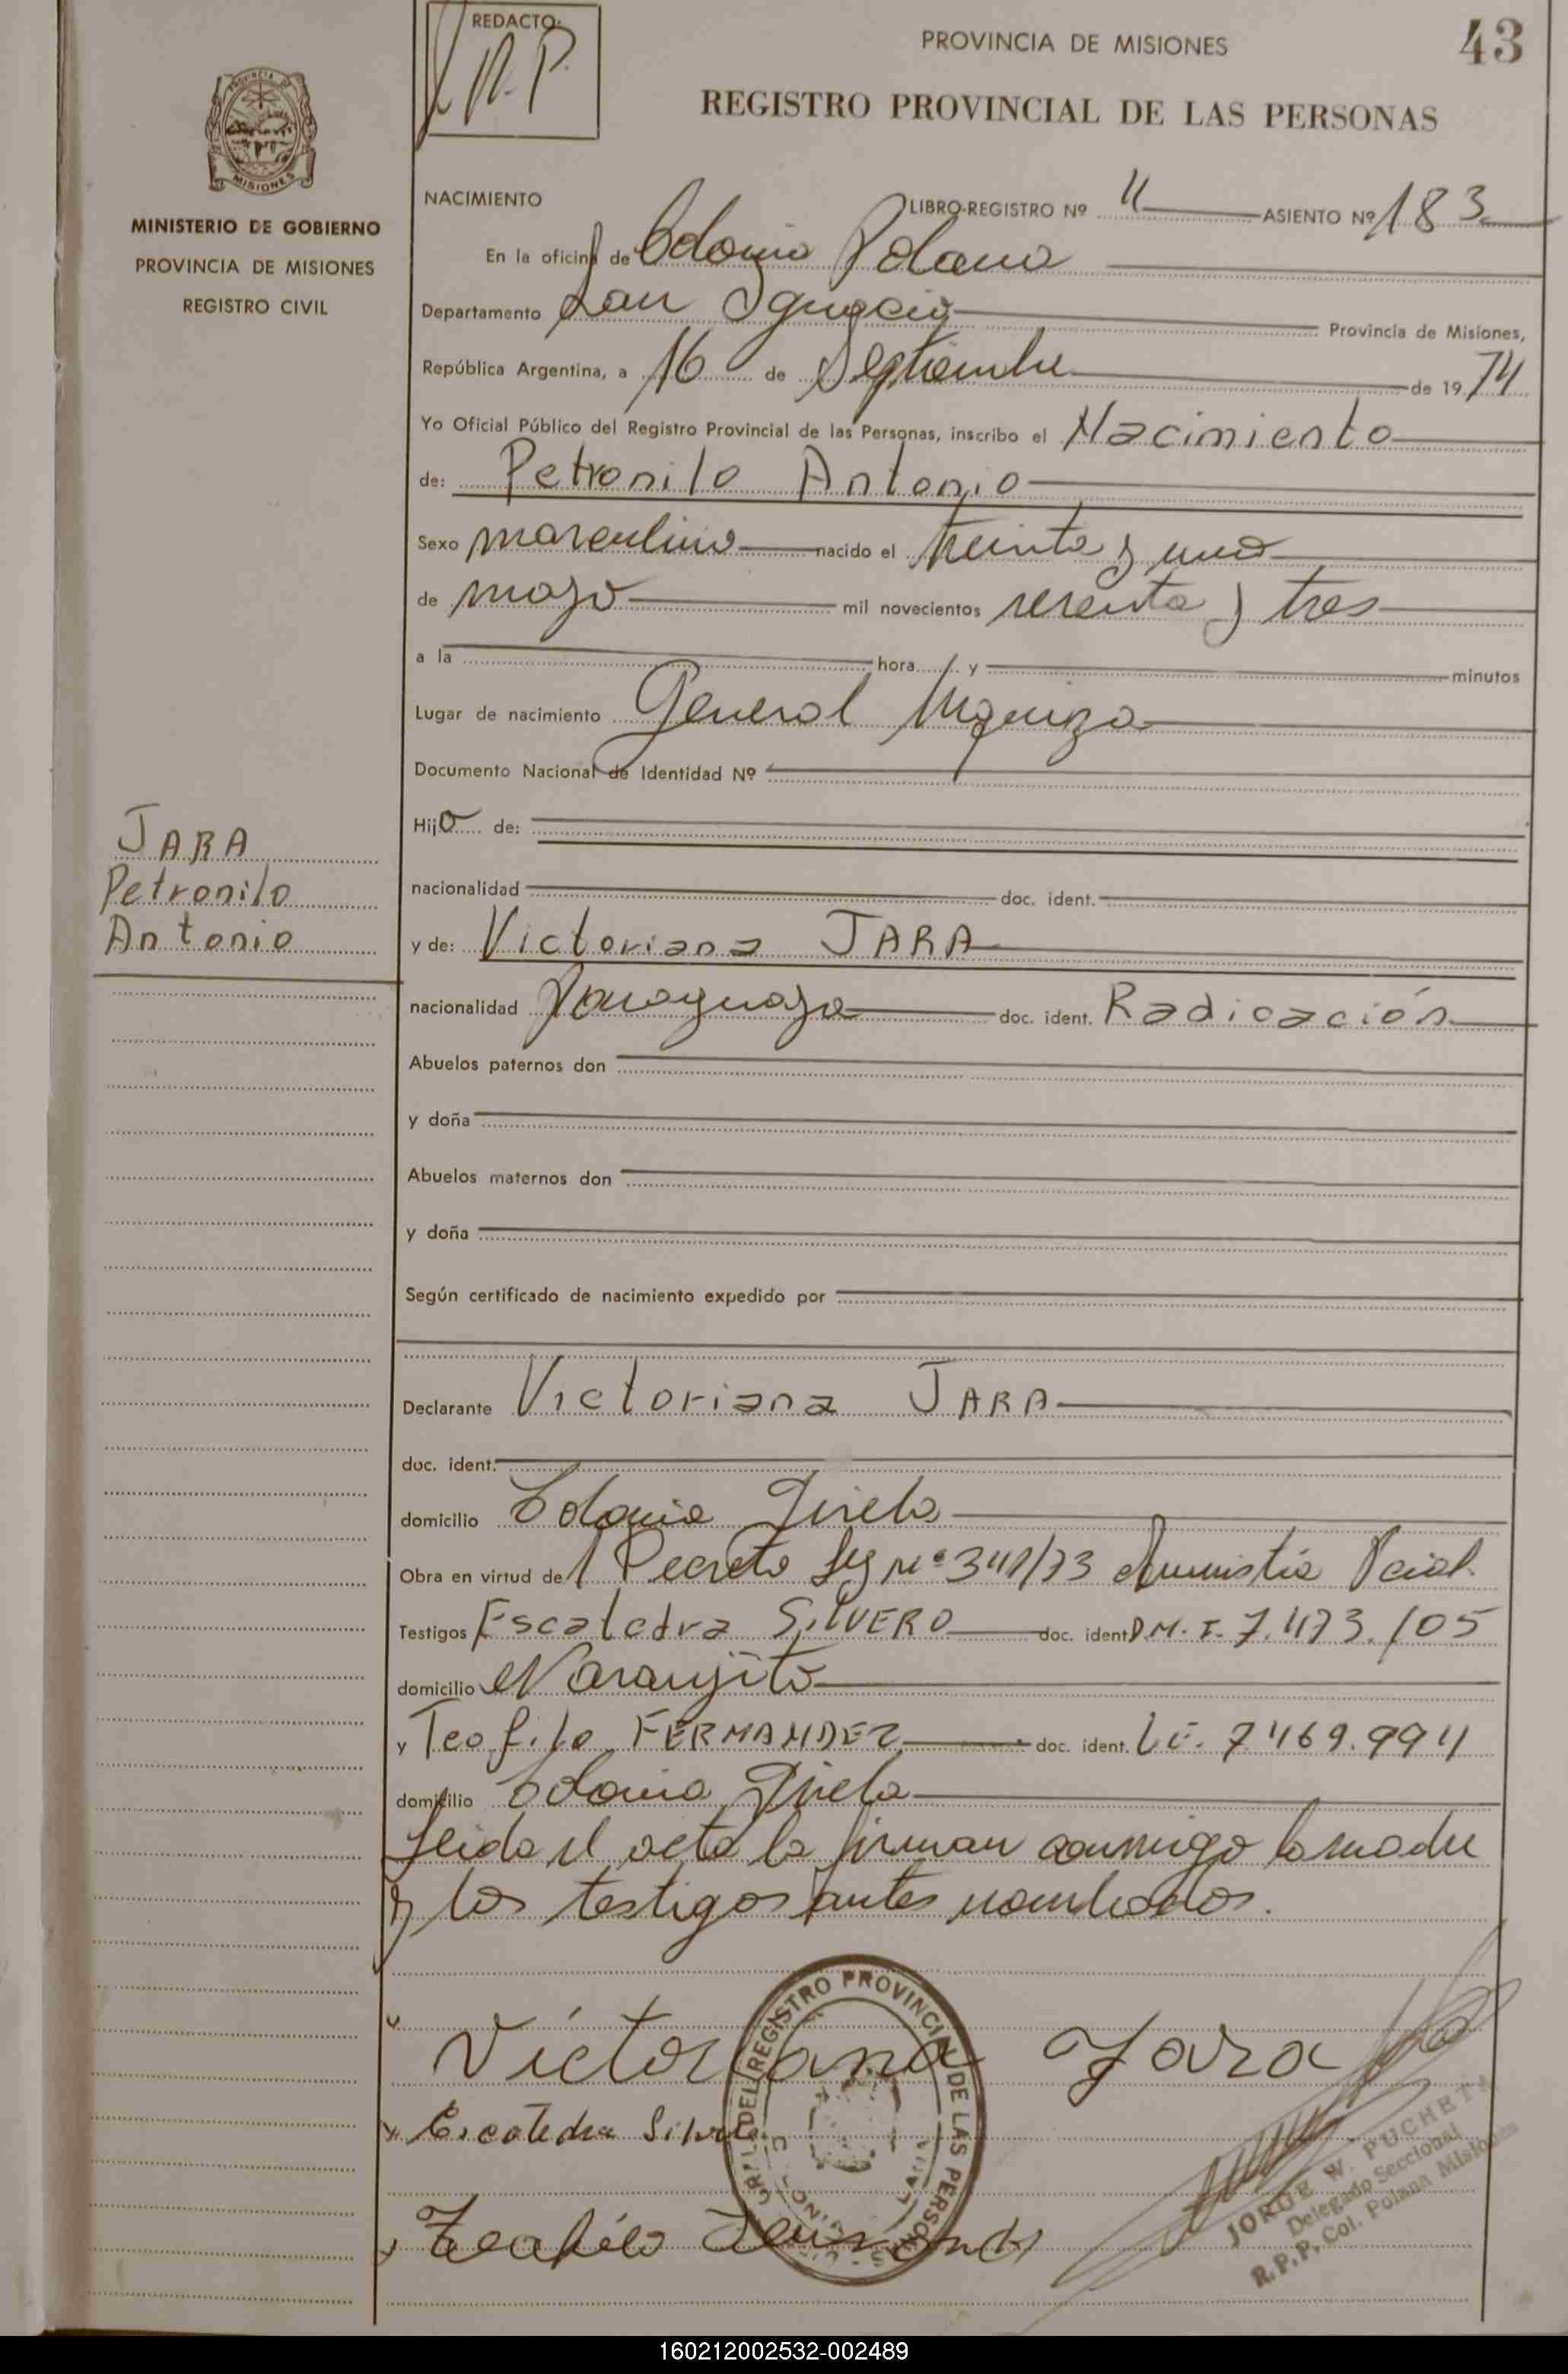 REDACTO:
R.P.
PROVINCIA DE MISIONES
43
REGISTRO PROVINCIAL DE LAS PERSONAS
PROVINCIA DE
MISIONES
MINISTERIO DE GOBIERNO
PROVINCIA DE MISIONES
REGISTRO CIVIL
NACIMIENTO LIBRO-REGISTRO Nº ASIENTO Nº 183
En la oficina de Colonia Polana
Departamento San Ignacio Provincia de Misiones,
República Argentina, a 16 de Septiembre de 1974
Yo Oficial Público del Registro Provincial de las Personas, inscribo el Nacimiento
de: Petronilo Antonio
Sexo masculino nacido el treinta y uno
de mayo mil novecientos sesenta y tres
a la hora y minutos
Lugar de nacimiento General Urquiza
Documento Nacional de Identidad Nº
Hijo de:
JARA
Petronilo
Antonio
nacionalidad doc. ident.
y de: Victoriana JARA
nacionalidad Paraguaya doc. ident. Radicación
Abuelos paternos don
y doña
Abuelos maternos don
y doña
Según certificado de nacimiento expedido por
Declarante Victoriana JARA
doc. ident.
domicilio Colonia Gisela
Obra en virtud del Decreto Ley Nº 341/73 Amnistía Pcial.
Testigos Escaledra SILVERO doc. ident. D.N.I. 7.473.105
domicilio Naranjito
y Teofilo FERNANDEZ doc. ident. L.E. 7469.994
domicilio Colonia Gisela
Leida el acta la firman conmigo la madre
y los testigos antes nombrados.
Victoriana Jara
Teofilo
REGISTRO PROVINCIAL DE LAS PERSONAS
JORGE W. PUCHETA
Delegado Seccional
R.P.P. Col. Polana Misiones
160212002532-002489